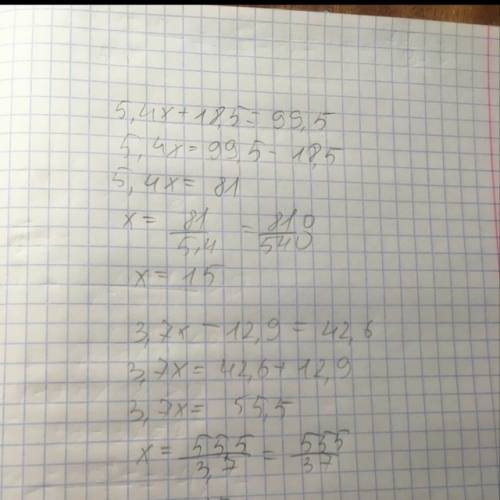 5,4x + 18,5 = 99,5
5,4x = 99,5 - 18,5
5,4x = 81
x = 81/5,4 = 810/540
x = 15
3,7x - 12,9 = 42,6
3,7x = 42,6 + 12,9
3,7x = 55,5
x = 555/3,7 = 555/37